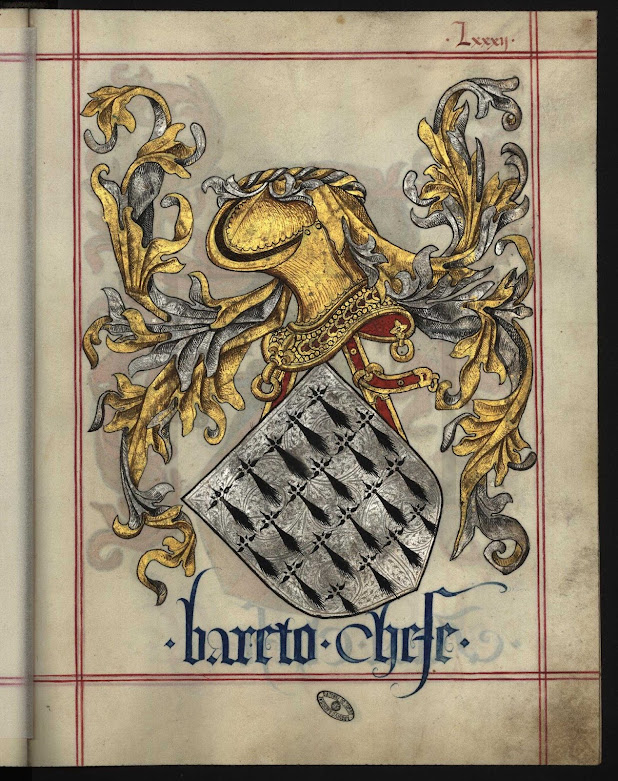 ·Lxxxij·
·bareto·Chefe·